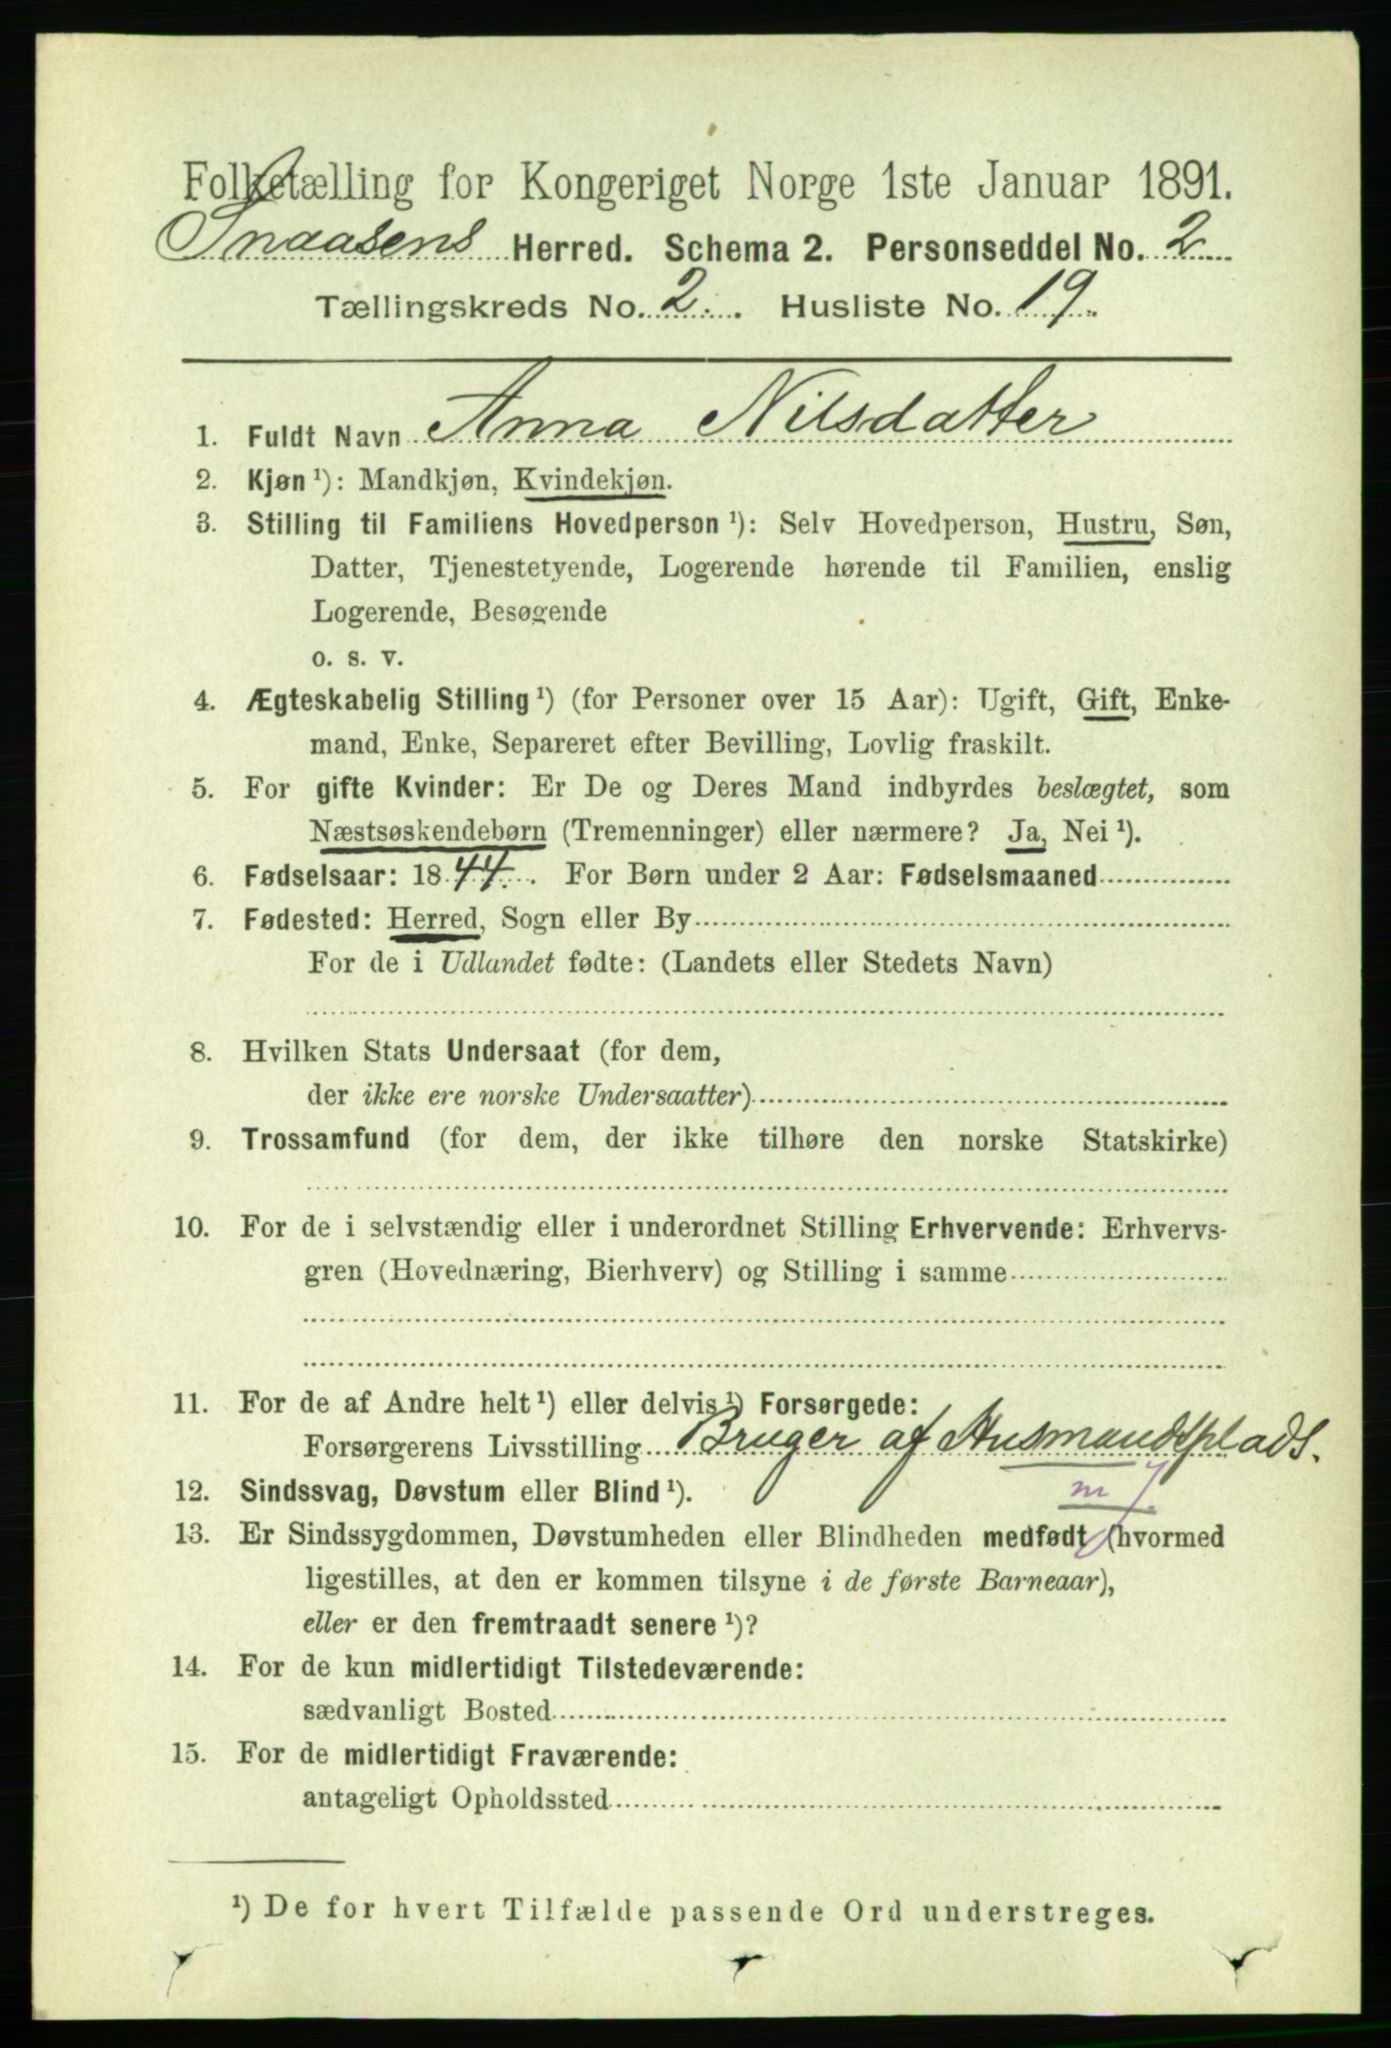 Folketælling for Kongeriget Norge 1ste Januar 1891.
Snaasens Herred. Schema 2. Personseddel No. 2
Tællingskreds No. 2. Husliste No. 19.
1. Fuldt Navn Anna Nilsdatter
2. Kjøn ¹): Mandkjøn, Kvindekjøn.
3. Stilling til Familiens Hovedperson ¹): Selv Hovedperson, Hustru, Søn,
Datter, Tjenestetyende, Logerende hørende til Familien, enslig
Logerende, Besøgende
o. s. v.
4. Ægteskabelig Stilling ¹) (for Personer over 15 Aar): Ugift, Gift, Enke-
mand, Enke, Separeret efter Bevilling, Lovlig fraskilt.
5. For gifte Kvinder: Er De og Deres Mand indbyrdes beslægtet, som
Næstsøskendebørn (Tremenninger) eller nærmere? Ja, Nei ¹).
6. Fødselsaar: 1844. For Børn under 2 Aar: Fødselsmaaned
7. Fødested: Herred, Sogn eller By
For de i Udlandet fødte: (Landets eller Stedets Navn)
8. Hvilken Stats Undersaat (for dem,
der ikke ere norske Undersaatter)
9. Trossamfund (for dem, der ikke tilhøre den norske Statskirke)
10. For de i selvstændig eller i underordnet Stilling Erhvervende: Erhvervs-
gren (Hovednæring, Bierhverv) og Stilling i samme
11. For de af Andre helt ¹) eller delvis ¹) Forsørgede:
Forsørgerens Livsstilling Bruger af Husmandsplads.
12. Sindssvag, Døvstum eller Blind ¹).
13. Er Sindssygdommen, Døvstumheden eller Blindheden medfødt (hvormed
ligestilles, at den er kommen tilsyne i de første Barneaar),
eller er den fremtraadt senere ¹)?
14. For de kun midlertidigt Tilstedeværende:
sædvanligt Bosted
15. For de midlertidigt Fraværende:
antageligt Opholdssted
¹) De for hvert Tilfælde passende Ord understreges.